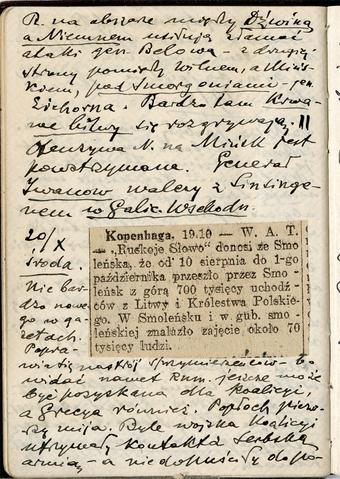 R. na obszarze między Dźwiną
a Niemnem usiłują złamać
ataki gen. Belowa – z drugiej
strony pomiędzy Wilnem, a Miń-
skiem, pod Smorgoniami – gen.
Eichorna. Bardzo tam krwa-
we bitwy się rozgrywają. II
Ofenzywa N. na Mińsk jest
powstrzymana. Generał
Iwanow walczy z Linsinge-
nem w Galic. Wschodn.
20/X
środa.
Kopenhaga. 19.10 — W. A. T.
— „Ruskoje Słowo" donosi ze Smo-
leńska, że od 10 sierpnia do 1-go
października przeszło przez Smo-
leńsk z górą 700 tysięcy uchodź-
ców z Litwy i Królestwa Polskie-
go. W Smoleńsku i w gub. smo-
leńskiej znalazło zajęcie około 70
tysięcy ludzi.
Nie bar-
dzo nowe-
go w ga-
zetach.
Popra-
wia się nastrój sprzymierzeńców – bo
widać nawet Rum. jeszcze może
być pozyskana dla koalicyi,
a Grecya również. Popłoch pierw-
szy mija. Byle wojska koalicyi
utrzymały kontakt z Serbską
armią – a nie dopuściły do po-